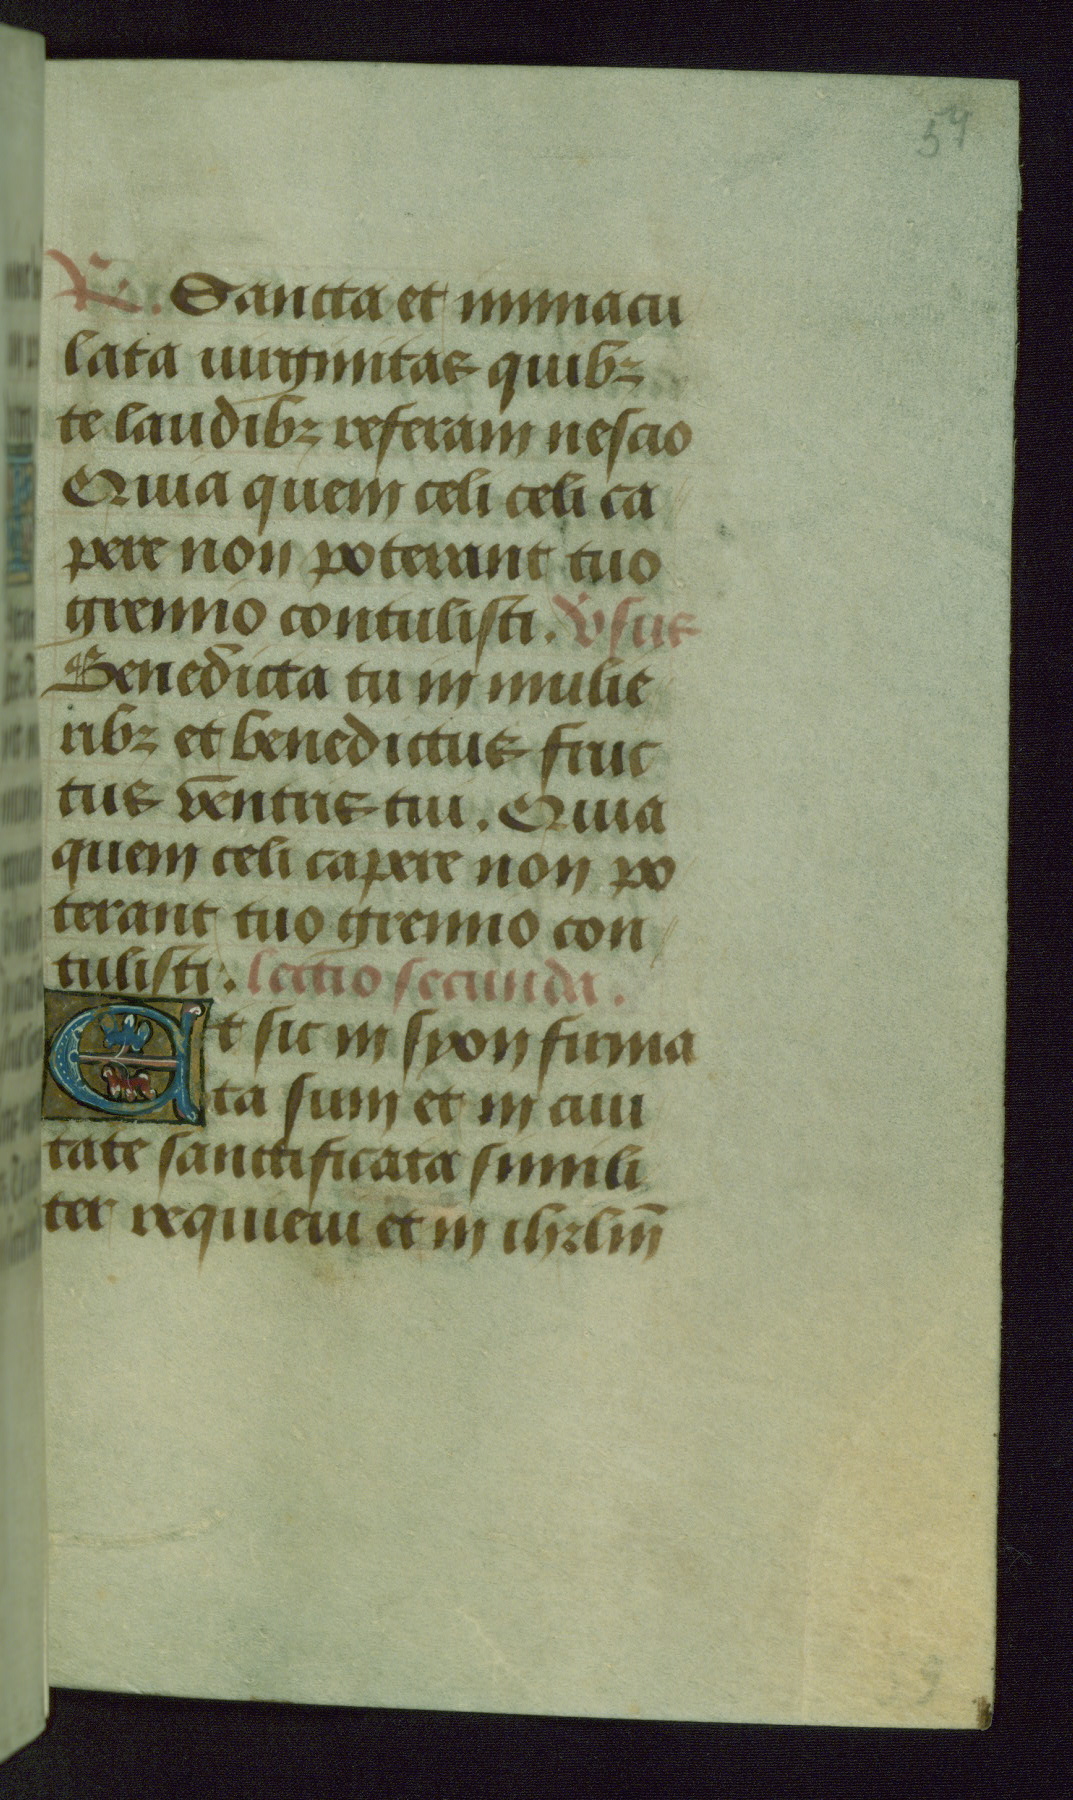 54
R. Sancta et immacu
lata uirginitas quibꝫ
te laudibꝫ referam nescio
Quia quem celi celi ca
pere non poterant tuo
gremio contulisti. Vsus
Benedicta tu in mulie
ribꝫ et benedictus fruc
tus ventris tui. Quia
quem celi capere non po
terant tuo gremio con
tulisti. lectio secunda.
Et sic in syon firma
ta sum et in ciui
tate sanctificata simili
ter requieui et in ihrlm̄